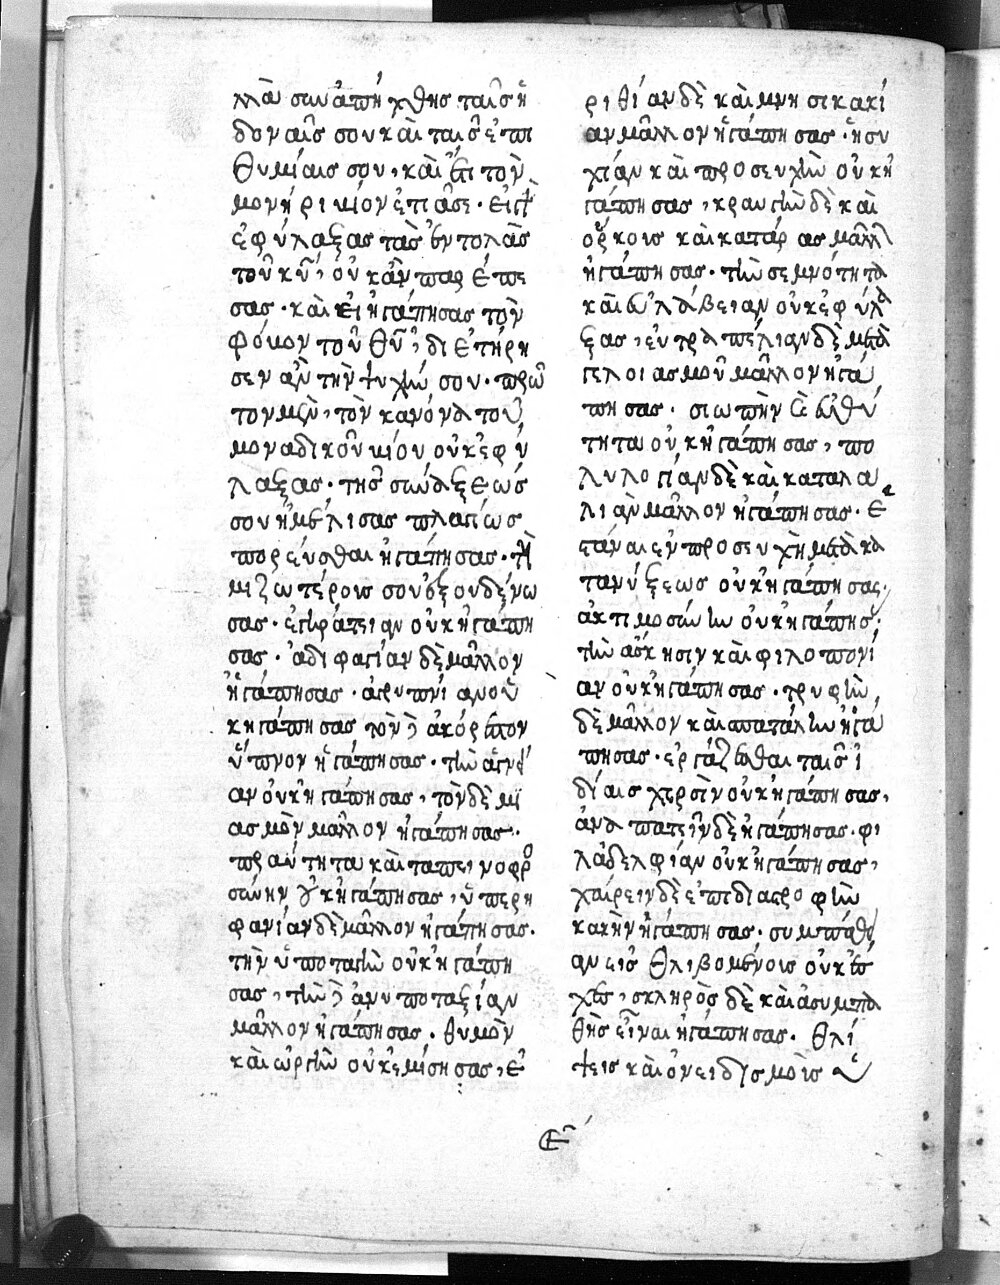 μᾶ συναπήχθης ταῖς ἡ
δοναῖς σου καὶ ταῖς ἐπι
θυμίαις σου, καὶ ἔτι τὸν
μονήρι μίον ἐπιασε· εἰ γὰρ
ἐφύλαξας τὰς ἐντολὰς
τοῦ κυ, οὐκ ἂν πας ἔπε
σας· καὶ εἰ ἠγάπησας τὸν
φόμον τοῦ θυ, διετήρη
σεν ἂν τὴν ψυχήν σου· πρῶ
τον μὲν, τὸν κανόνα τοῦ
μοναδικοῦ μίου οὐκ ἐφύ
λαξας· τῆς συνάξεως
σου ἠμέλισας πλαγίως
πορεύσθαι ἠγάπησας· τὴ
μιζωτέροις σου ἐξουδένω
σας· ἐγκράτειαν οὐκ ἠγάπη
σας· ἀδιφαγίαν δὲ μᾶλλον
ἠγάπησας· ἀγρυπνίαν οὐ
κ ἠγάπησας τὸν δὲ ἀκόρεστον
ὕπνον ἠγάπησας· τὴν ἁγνεί
αν οὐκ ἠγάπησας, τὸν δὲ μι
ασμὸν μᾶλλον ἠγάπησας·
πραύτητα καὶ ταπεινοφρο
σύνην οὐκ ἠγάπησας, ὑπερη
φανίαν δὲ μᾶλλον ἠγάπησας·
τὴν ὑποταγὴν οὐκ ἠγάπη
σας, τὴν δὲ ἀνυποταξίαν
μᾶλλον ἠγάπησας· θυμὸν
καὶ ὠργὴν οὐκ ἐμίσησας, ἐ
ριθίαν δὲ καὶ μνησικακί
αν μᾶλλον ἠγάπησας· ἡσυ
χίαν καὶ προσευχὴν οὐκ ἠ
γάπησας, κραυγὴν δὲ καὶ
ὅρκοις καὶ κατάρας μᾶλλ
ἠγάπησας· τὴν σεμνότητα
καὶ εὐλάβειαν οὐκ ἐφύλα
ξας, εὐτραπελίαν δὲ μετὰ
γελοιασμοῦ μᾶλλον ἠγά
πησας· σιωπὴν καὶ εὐθύ
τητα οὐκ ἠγάπησας, πο
λυλογίαν δὲ καὶ καταλα
λιὰν μᾶλλον ἠγάπησας· ἑ
στάναι ἐν προσευχῇ μετὰ κα
τανύξεως οὐκ ἠγάπησας·
ἀκτιμοσύνην οὐκ ἠγάπησ·
τὴν ἄσκησιν καὶ φιλοπονί
αν οὐκ ἠγάπησας· τρυφὴν
δὲ μᾶλλον καὶ σπατάλην ἠγά
πησας· ἐργάζεσθαι ταῖς ἰ
δίαις χερσὶν οὐκ ἠγάπησας,
ἀναπατεῖν δὲ ἠγάπησας· φι
λαδελφίαν οὐκ ἠγάπησας,
χαίρειν δὲ ἐπὶ διαστροφὴν
κακὴν ἠγάπησας· συμπάθει
αν εἰς θλιβομένοις οὐκ ἔσ
χες, σκληρὸς δὲ καὶ ἀσυμπα
θὴς εἶναι ἠγάπησας· θλί
ψεις καὶ ὀνειδισμοὶς